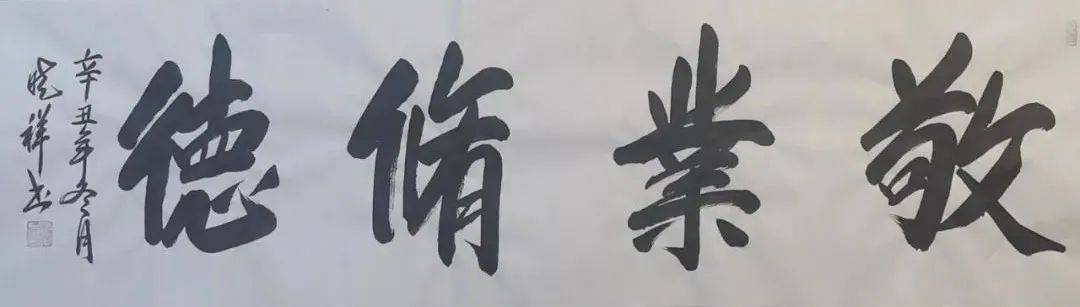 敬業脩德
辛丑年冬月
曉祥书